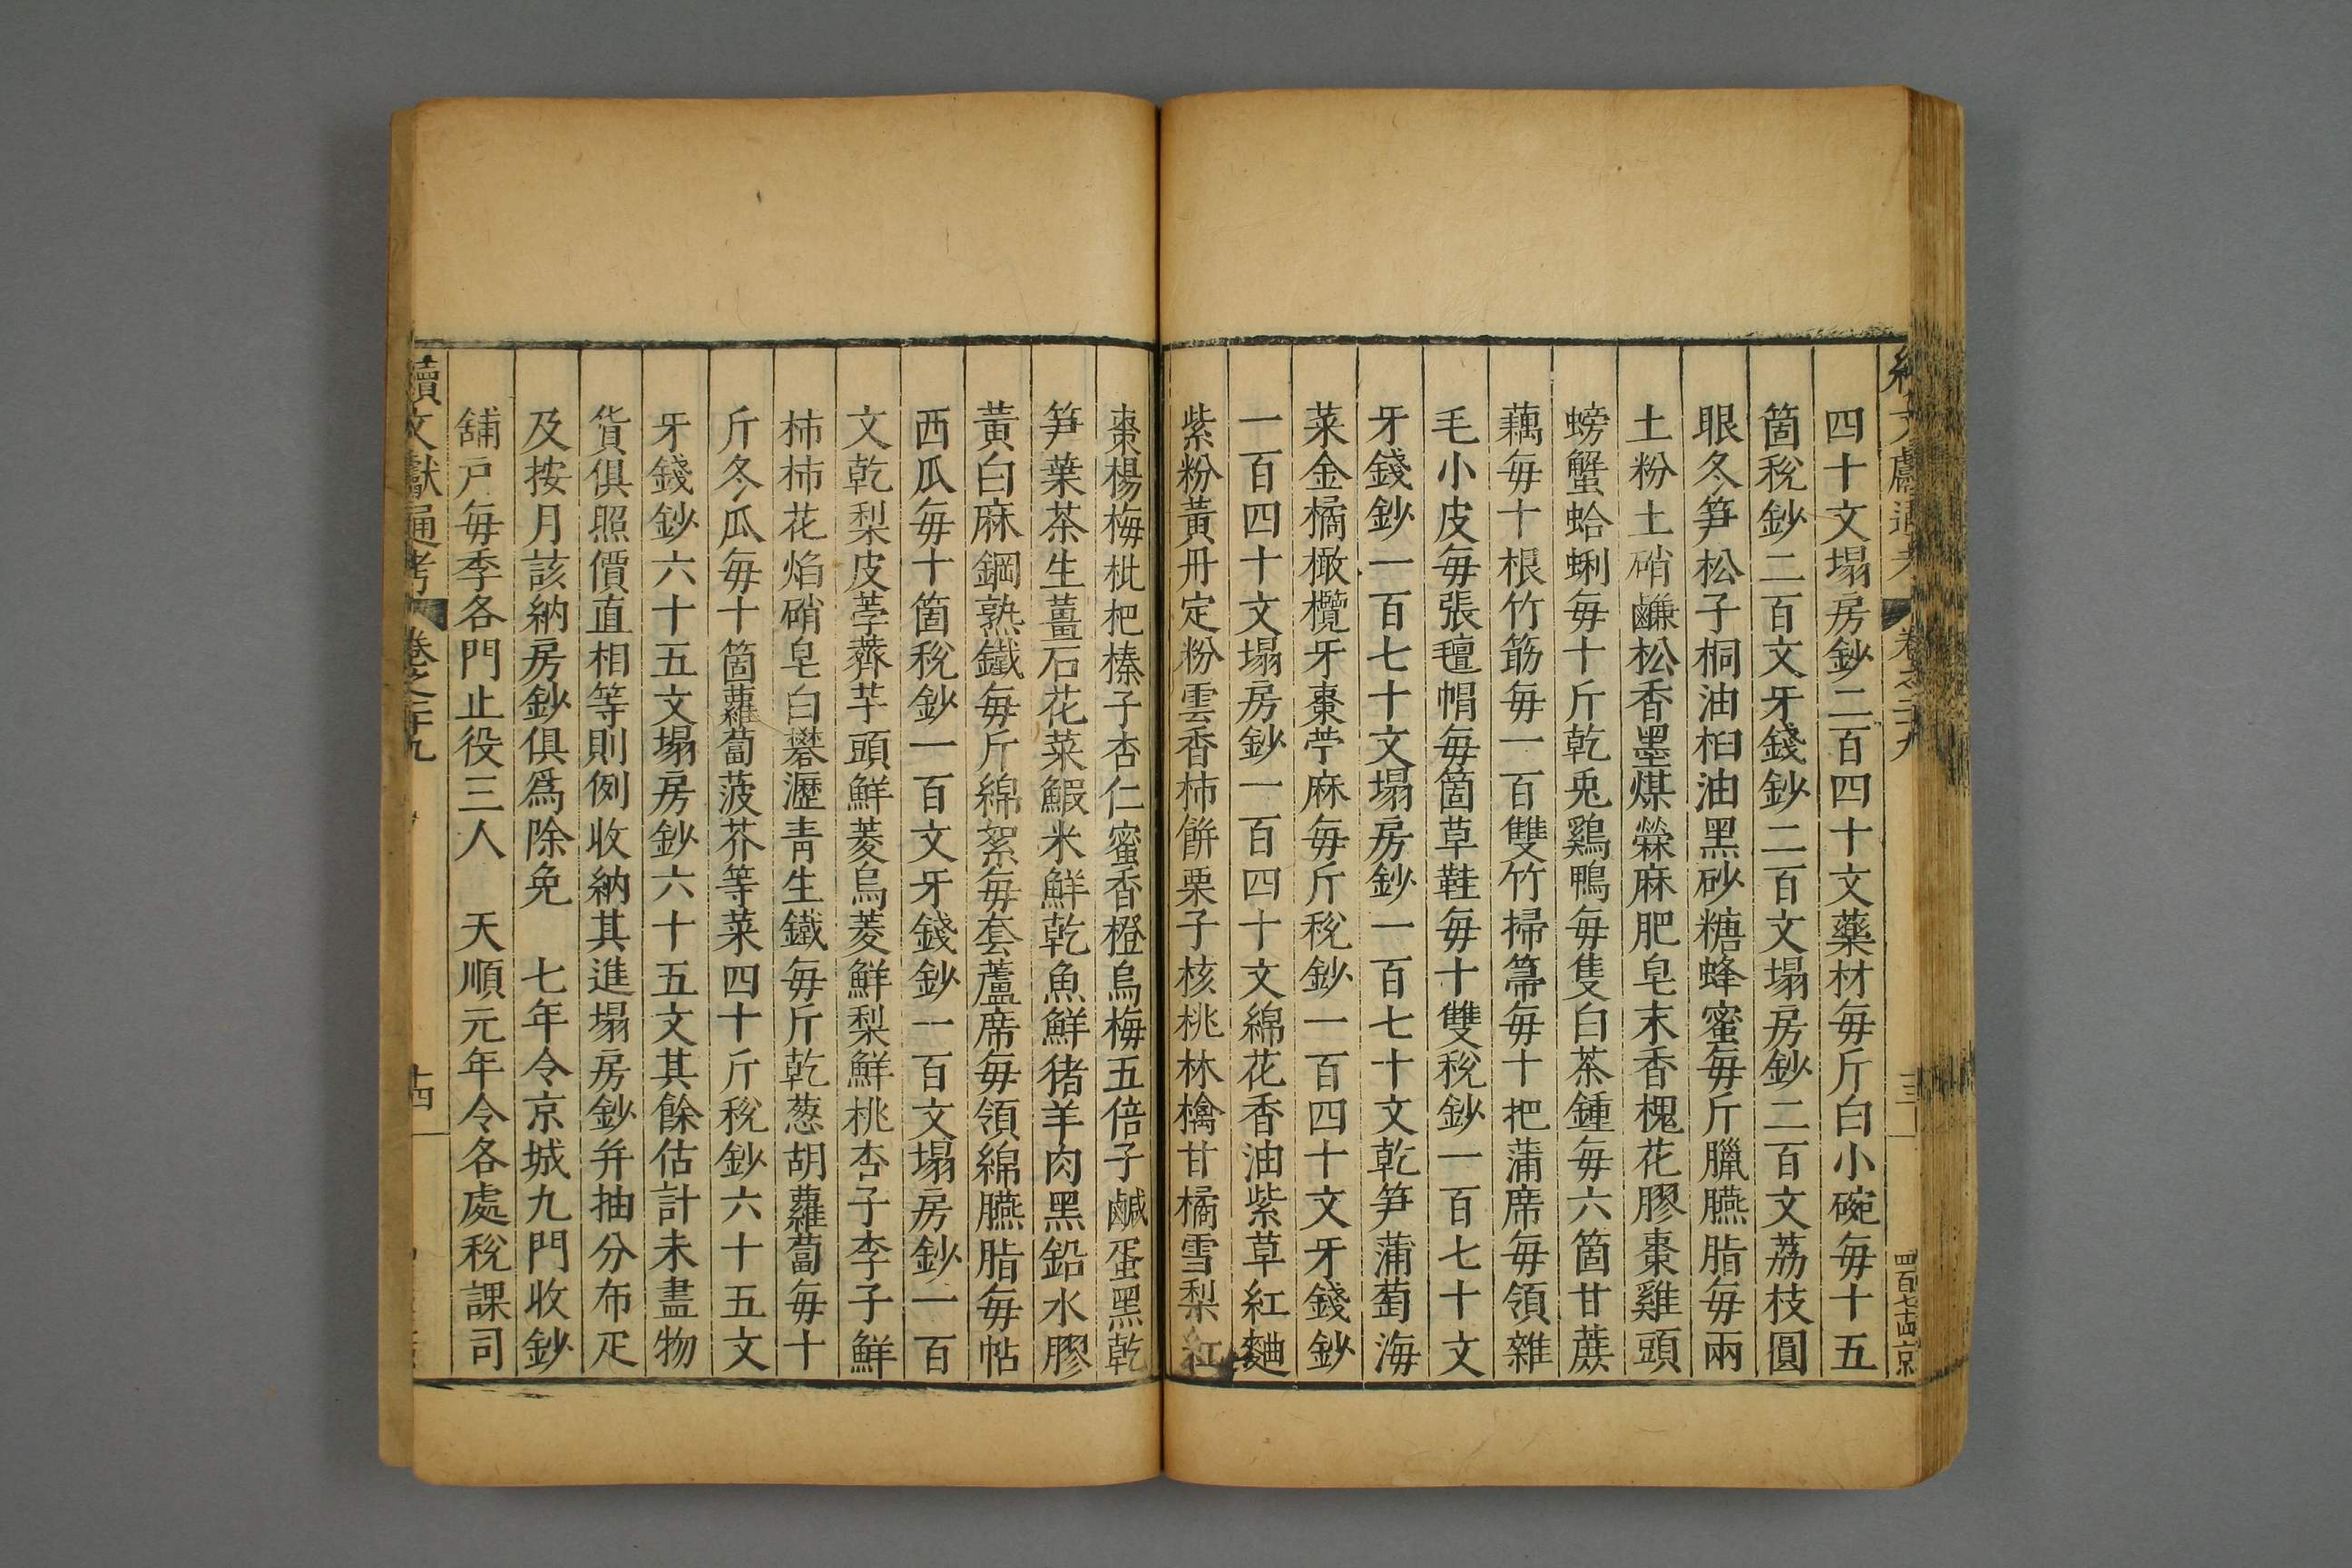 四十文塌房鈔二百四十文藥材每斤白小碗每十五
箇稅鈔二百文牙錢鈔二百文塌房鈔二百文荔枝圓
眼冬笋松子桐油桕油黑砂糖蜂蜜每斤臘臙脂每兩
土粉土硝鹻松香墨煤檾麻肥皂末香槐花膠棗雞頭
螃蟹蛤蜊每十斤乾兎鷄鴨每隻白茶鍾每六箇甘蔗
藕每十根竹筯每一百雙竹掃箒每十把蒲席每領雜
毛小皮每張氊帽每箇草鞋每十雙稅鈔一百七十文
牙錢鈔一百七十文塌房鈔一百七十文乾笋蒲萄海
菜金橘橄欖牙棗苧麻每斤稅鈔一百四十文牙錢鈔
一百四十文塌房鈔一百四十文綿花香油紫草紅麯
紫粉黃丹定粉雲香柿餅栗子核桃林檎甘橘雪梨紅
棗楊梅枇杷榛子杏仁蜜香橙烏梅五倍子鹹蛋黑乾
笋葉茶生薑石花菜鰕米鮮乾魚鮮猪羊肉黑鉛水膠
黃白麻鋼熟鐵每斤綿絮每套蘆席每領綿臙脂每帖
西瓜每十箇稅鈔一百文牙錢鈔一百文塌房鈔一百
文乾梨皮荸薺芋頭鮮菱烏菱鮮梨鮮桃杏子李子鮮
柿柿花焰硝皂白礬瀝青生鐵每斤乾葱胡蘿蔔每十
斤冬瓜每十箇蘿蔔菠芥等菜四十斤稅鈔六十五文
牙錢鈔六十五文塌房鈔六十五文其餘估計未盡物
貨俱照價直相等則例收納其進塌房鈔幷抽分布疋
及按月該納房鈔俱爲除免　七年令京城九門收鈔
舖戶每季各門止役三人　天順元年令各處稅課司
續文獻通考　卷之二十九　十四